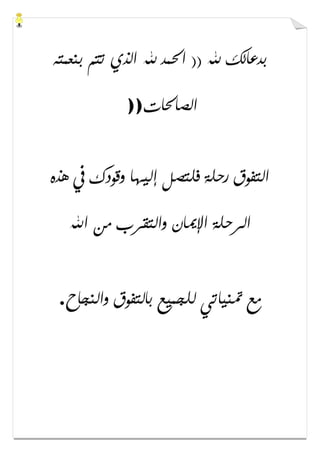 بدعائك لله (( الحمد لله الذي تتم بنعمته
الصالحات((
التفوق رحلة فلتصل إليها وقودك في هذه
الرحلة الإيمان والتقرب من الله
مع تمنياتي للجميع بالتفوق والنجاح.